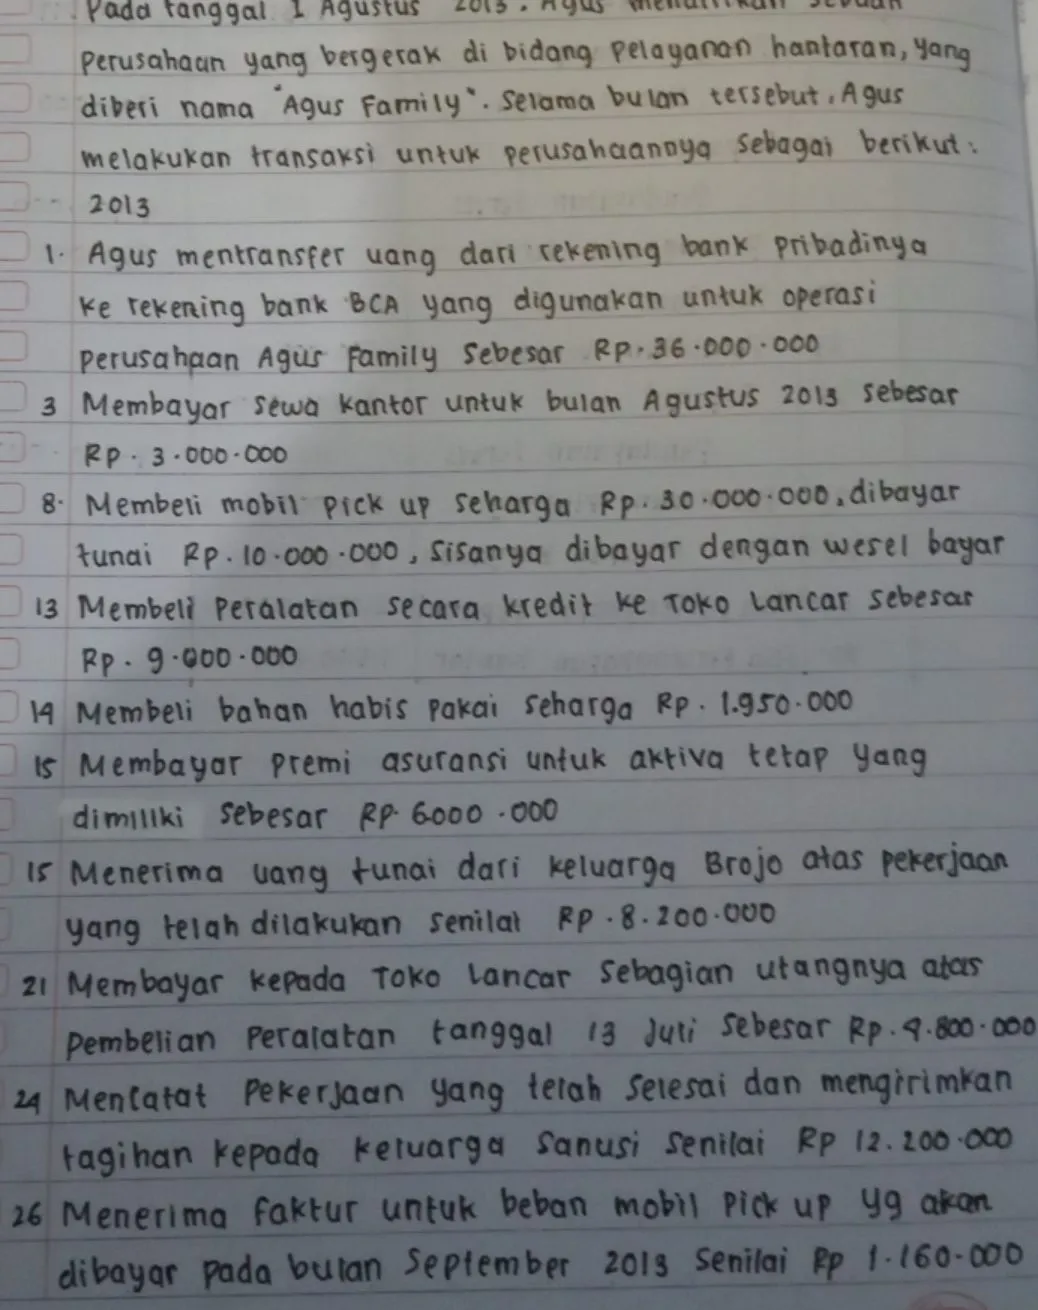 Pada tanggal 1 Agustus 2013. Agus mendirikan sebuah
perusahaan yang bergerak di bidang pelayanan hantaran, yang
diberi nama "Agus Family". Selama bulan tersebut, Agus
melakukan transaksi untuk perusahaannya sebagai berikut:
2013
1. Agus mentransfer uang dari rekening bank pribadinya
ke rekening bank BCA yang digunakan untuk operasi
perusahaan Agus Family sebesar Rp. 36.000.000
3 Membayar sewa kantor untuk bulan Agustus 2013 sebesar
Rp. 3.000.000
8. Membeli mobil pick up seharga Rp. 30.000.000, dibayar
tunai Rp. 10.000.000, sisanya dibayar dengan wesel bayar
13 Membeli Peralatan secara kredit ke Toko Lancar sebesar
Rp. 9.000.000
14 Membeli bahan habis pakai seharga Rp. 1.950.000
15 Membayar premi asuransi untuk aktiva tetap yang
dimiliki sebesar Rp. 6000.000
15 Menerima uang tunai dari keluarga Brojo atas pekerjaan
yang telah dilakukan senilai Rp. 8.200.000
21 Membayar kepada Toko Lancar sebagian utangnya atas
pembelian peralatan tanggal 13 Juli sebesar Rp. 4.800.000
24 Mencatat Pekerjaan yang telah selesai dan mengirimkan
tagihan kepada keluarga Sanusi senilai Rp 12.200.000
26 Menerima faktur untuk beban mobil Pick up yg akan
dibayar pada bulan September 2013 senilai Rp 1.160.000